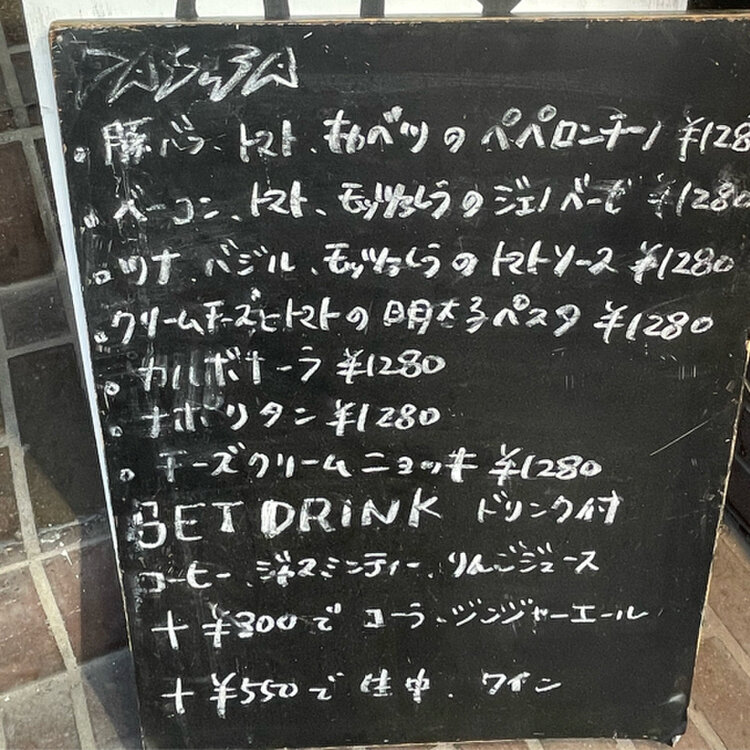 PASTA
・豚バラ、トマト、キャベツのペペロンチーノ ¥128
・ベーコン、トマト、モッツァレラのジェノベーゼ ¥1280
・ツナ、バジル、モッツァレラのトマトソース ¥1280
・クリームチーズとトマトの明太子パスタ ¥1280
・カルボナーラ ¥1280
・ナポリタン ¥1280
・チーズクリームニョッキ ¥1280
SET DRINK ドリンク付
コーヒー、ジャスミンティー、りんごジュース
+¥300で コーラ、ジンジャーエール
+¥550で 生中、ワイン